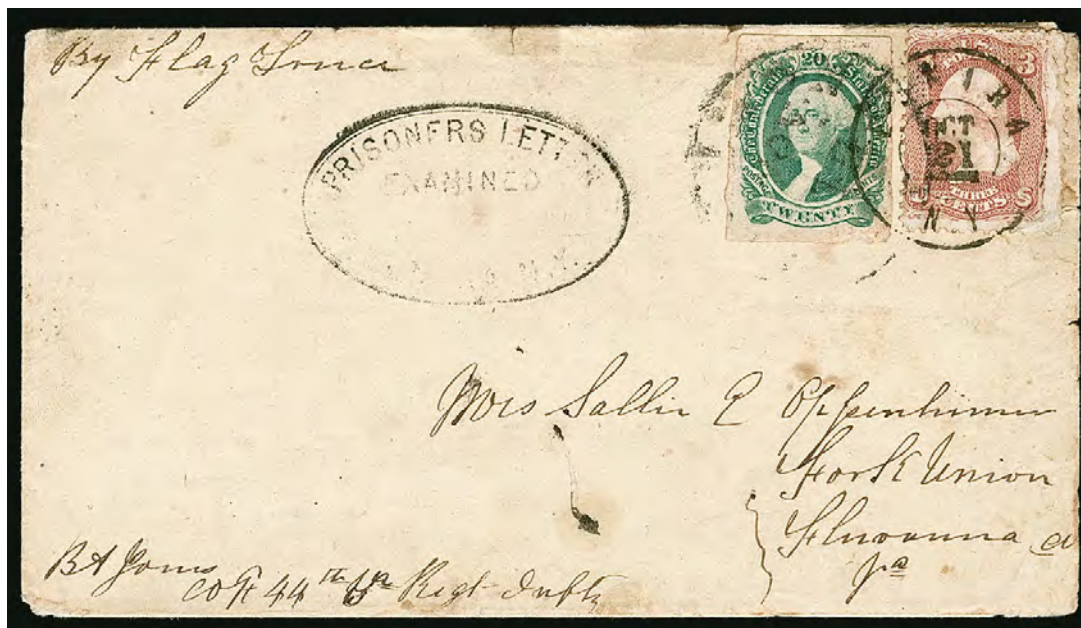 By Flag Truce
PRISONERS LETTER
EXAMINED
N.Y.
20
The Confederate States of America
POSTAGE
CENTS
TWENTY
3
THREE
CENTS
U S
OCT
21
N.Y.
Mrs Sallie E Oppenhimer
Fork Union
Fluvanna Co
Va
B A Jones
Co F 44th Va Regt Infty